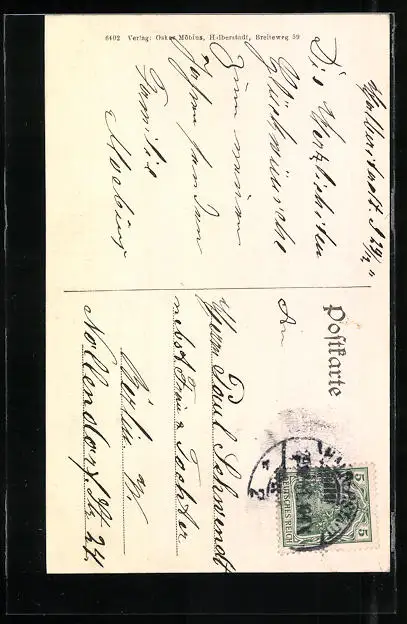 6402 Verlag: Oskar Möbius, Halberstadt, Breiteweg 59
Halberstadt. d 29/12
Die Herzlichsten
Glückwünsche
Zum neuen
Jahre senden
Familie
Moebius
Postkarte
An
Herrn Paul Schwendt
nebst Frau u. Tochter
Berlin W.
Nollendorf. Str 24.
5
5
DEUTSCHES REICH